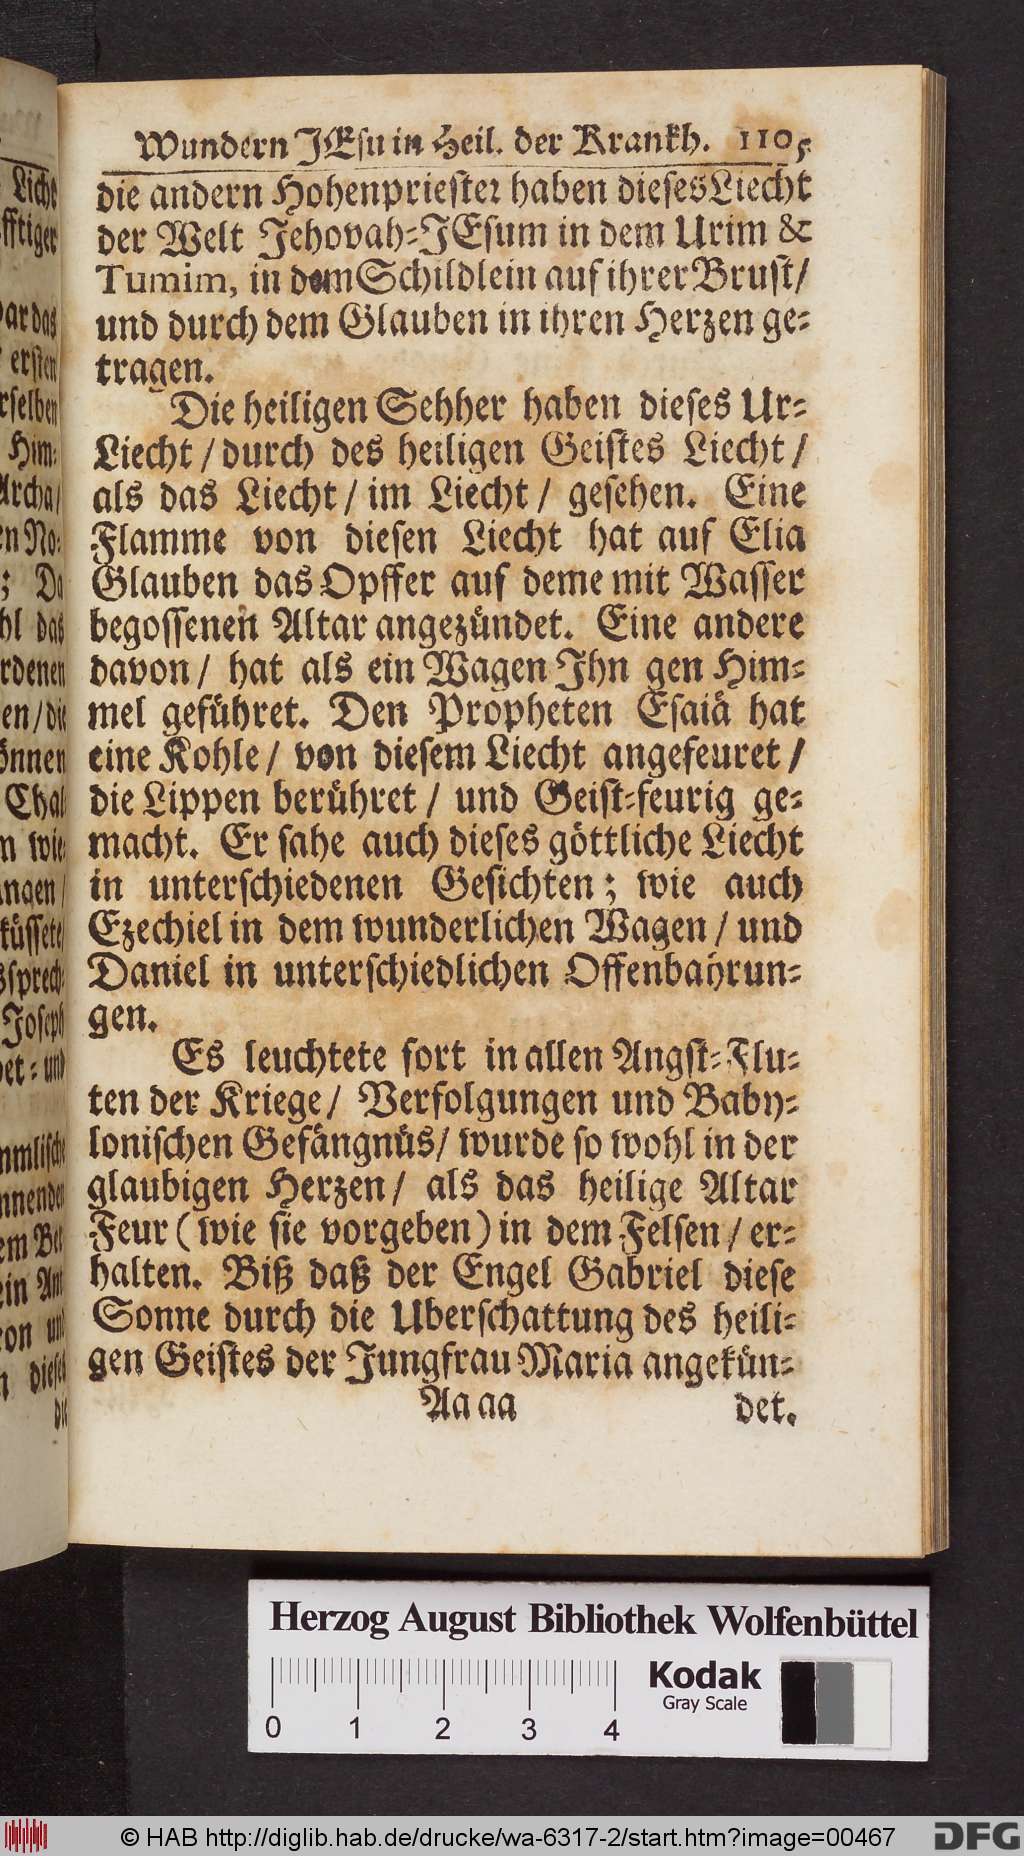 Wundern JEsu in Heil. der Krankh. 1105
die andern Hohenpriester haben dieses Liecht
der Welt Jehovah-JEsum in dem Urim &
Tumim, in dem Schildlein auf ihrer Brust/
und durch dem Glauben in ihren Herzen ge-
tragen.
Die heiligen Sehher haben dieses Ur-
Liecht / durch des heiligen Geistes Liecht /
als das Liecht / im Liecht / gesehen. Eine
Flamme von diesen Liecht hat auf Elia
Glauben das Opffer auf deme mit Wasser
begossenen Altar angezündet. Eine andere
davon / hat als ein Wagen Ihn gen Him-
mel geführet. Den Propheten Esaiä hat
eine Kohle / von diesem Liecht angefeuret /
die Lippen berühret / und Geist-feurig ge-
macht. Er sahe auch dieses göttliche Liecht
in unterschiedenen Gesichten; wie auch
Ezechiel in dem wunderlichen Wagen / und
Daniel in unterschiedlichen Offenbahrun-
gen.
Es leuchtete fort in allen Angst-Flu-
ten der Kriege / Verfolgungen und Baby-
lonischen Gefängnüs / wurde so wohl in der
glaubigen Herzen / als das heilige Altar
Feur (wie sie vorgeben) in dem Felsen / er-
halten. Biß daß der Engel Gabriel diese
Sonne durch die Uberschattung des heili-
gen Geistes der Jungfrau Maria angekün-
Aa aa det.
Herzog August Bibliothek Wolfenbüttel
Kodak
Gray Scale
0 1 2 3 4
© HAB http://diglib.hab.de/drucke/wa-6317-2/start.htm?image=00467
DFG